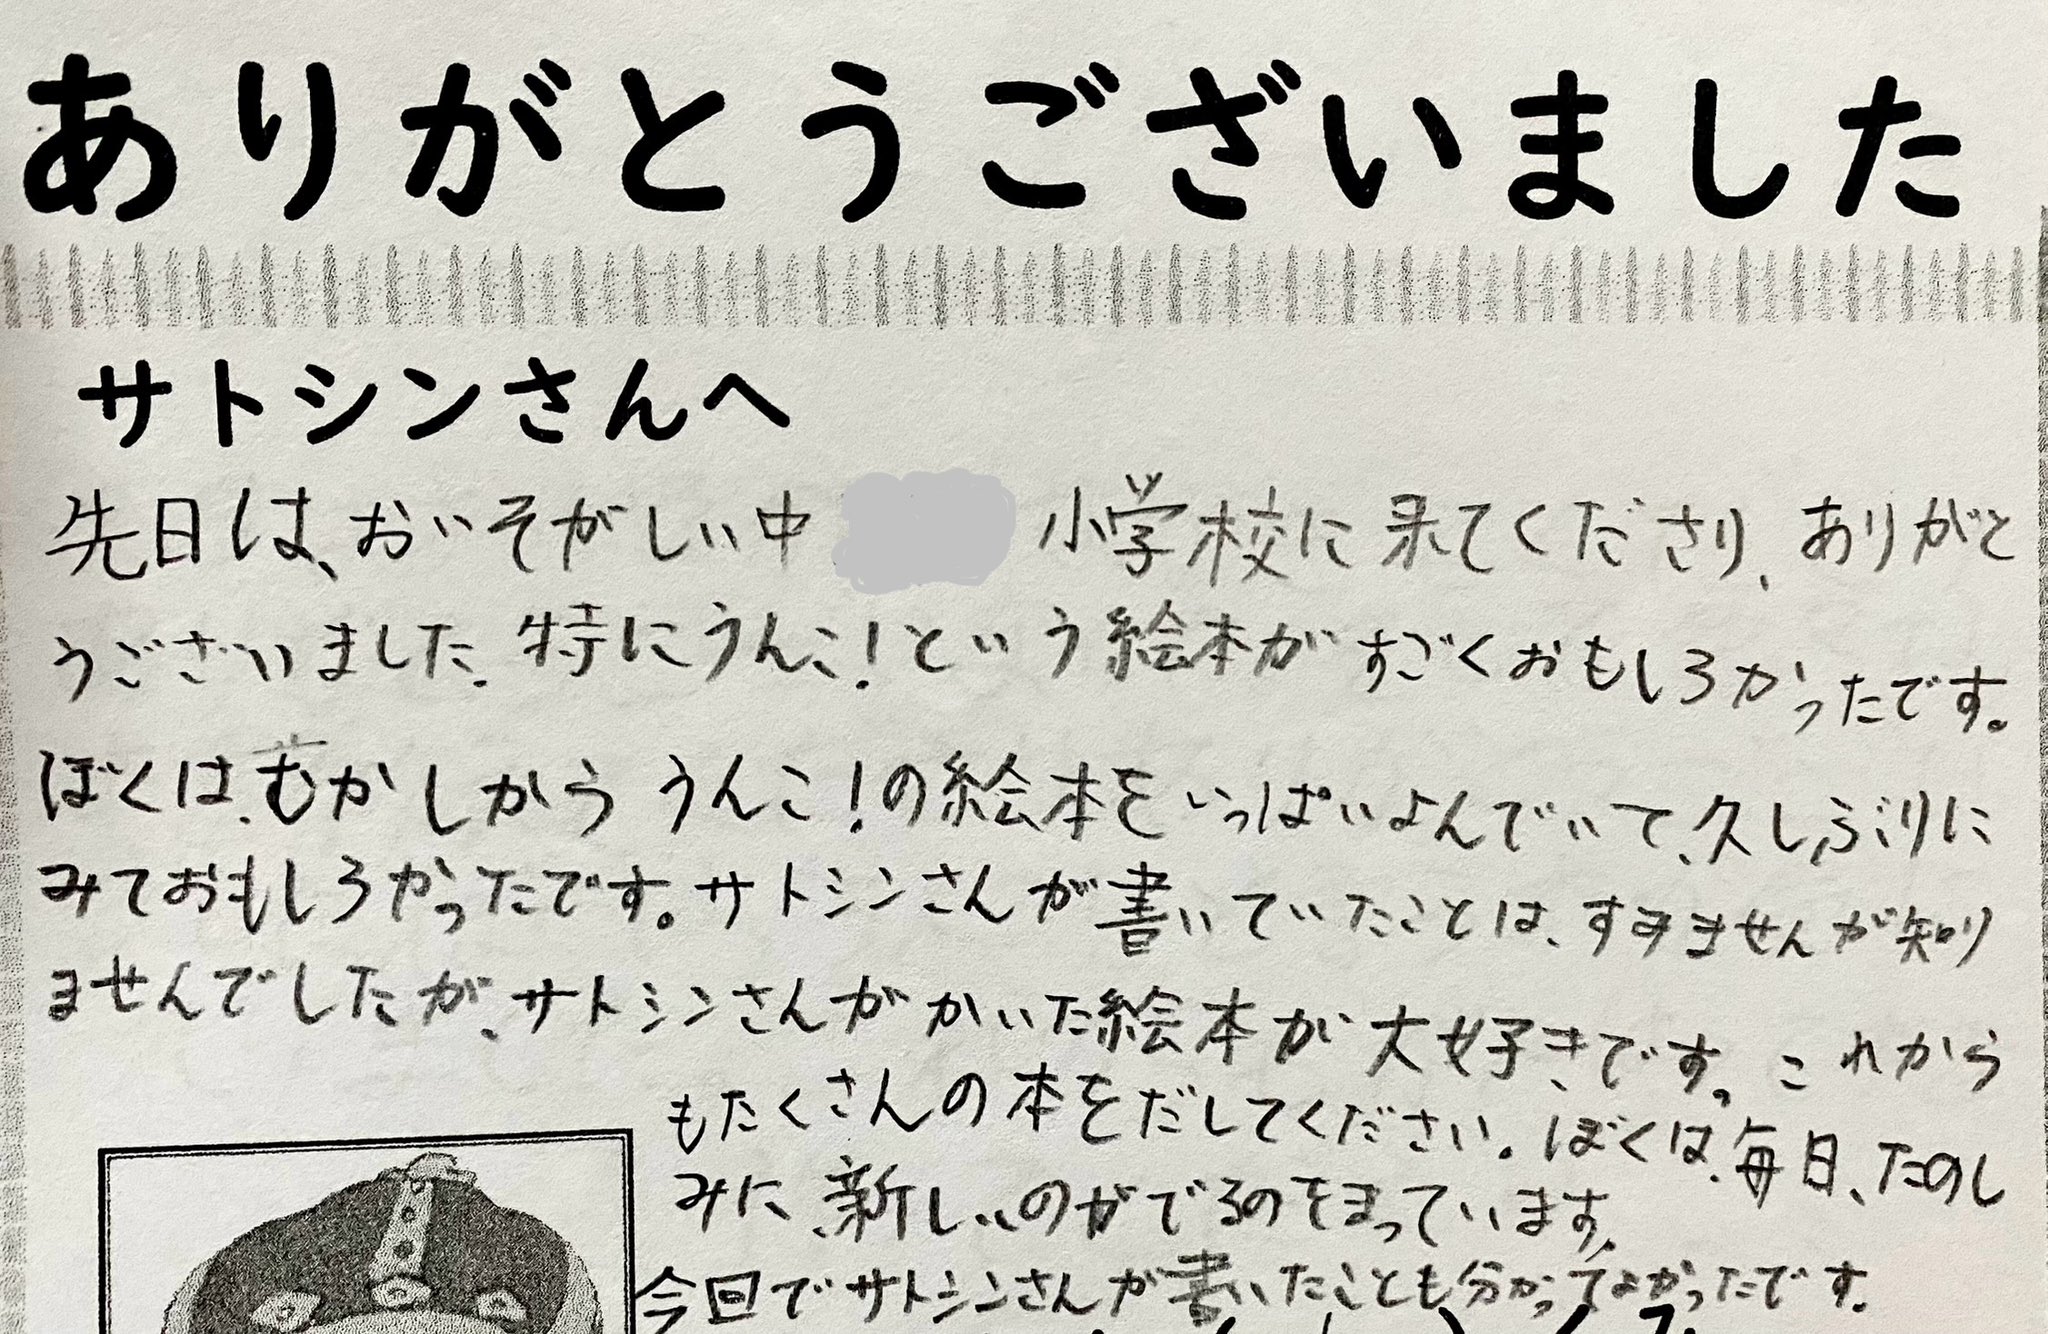 ありがとうございました
サトシンさんへ
先日は、おいそがしい中 小学校に来てくださり、ありがと
うございました。特にうんこ!という絵本がすごくおもしろかったです。
ぼくは、むかしからうんこ!の絵本をいっぱいよんでいて、久しぶりに
みておもしろかったです。サトシンさんが書いていたことは、すみませんが知り
ませんでしたが、サトシンさんがかいた絵本が大好きです。これから
もたくさんの本をだしてください。ぼくは、毎日、たのし
みに、新しいのがでるのをまっています。
今回でサトシンさんが書いたことも分かってよかったです。